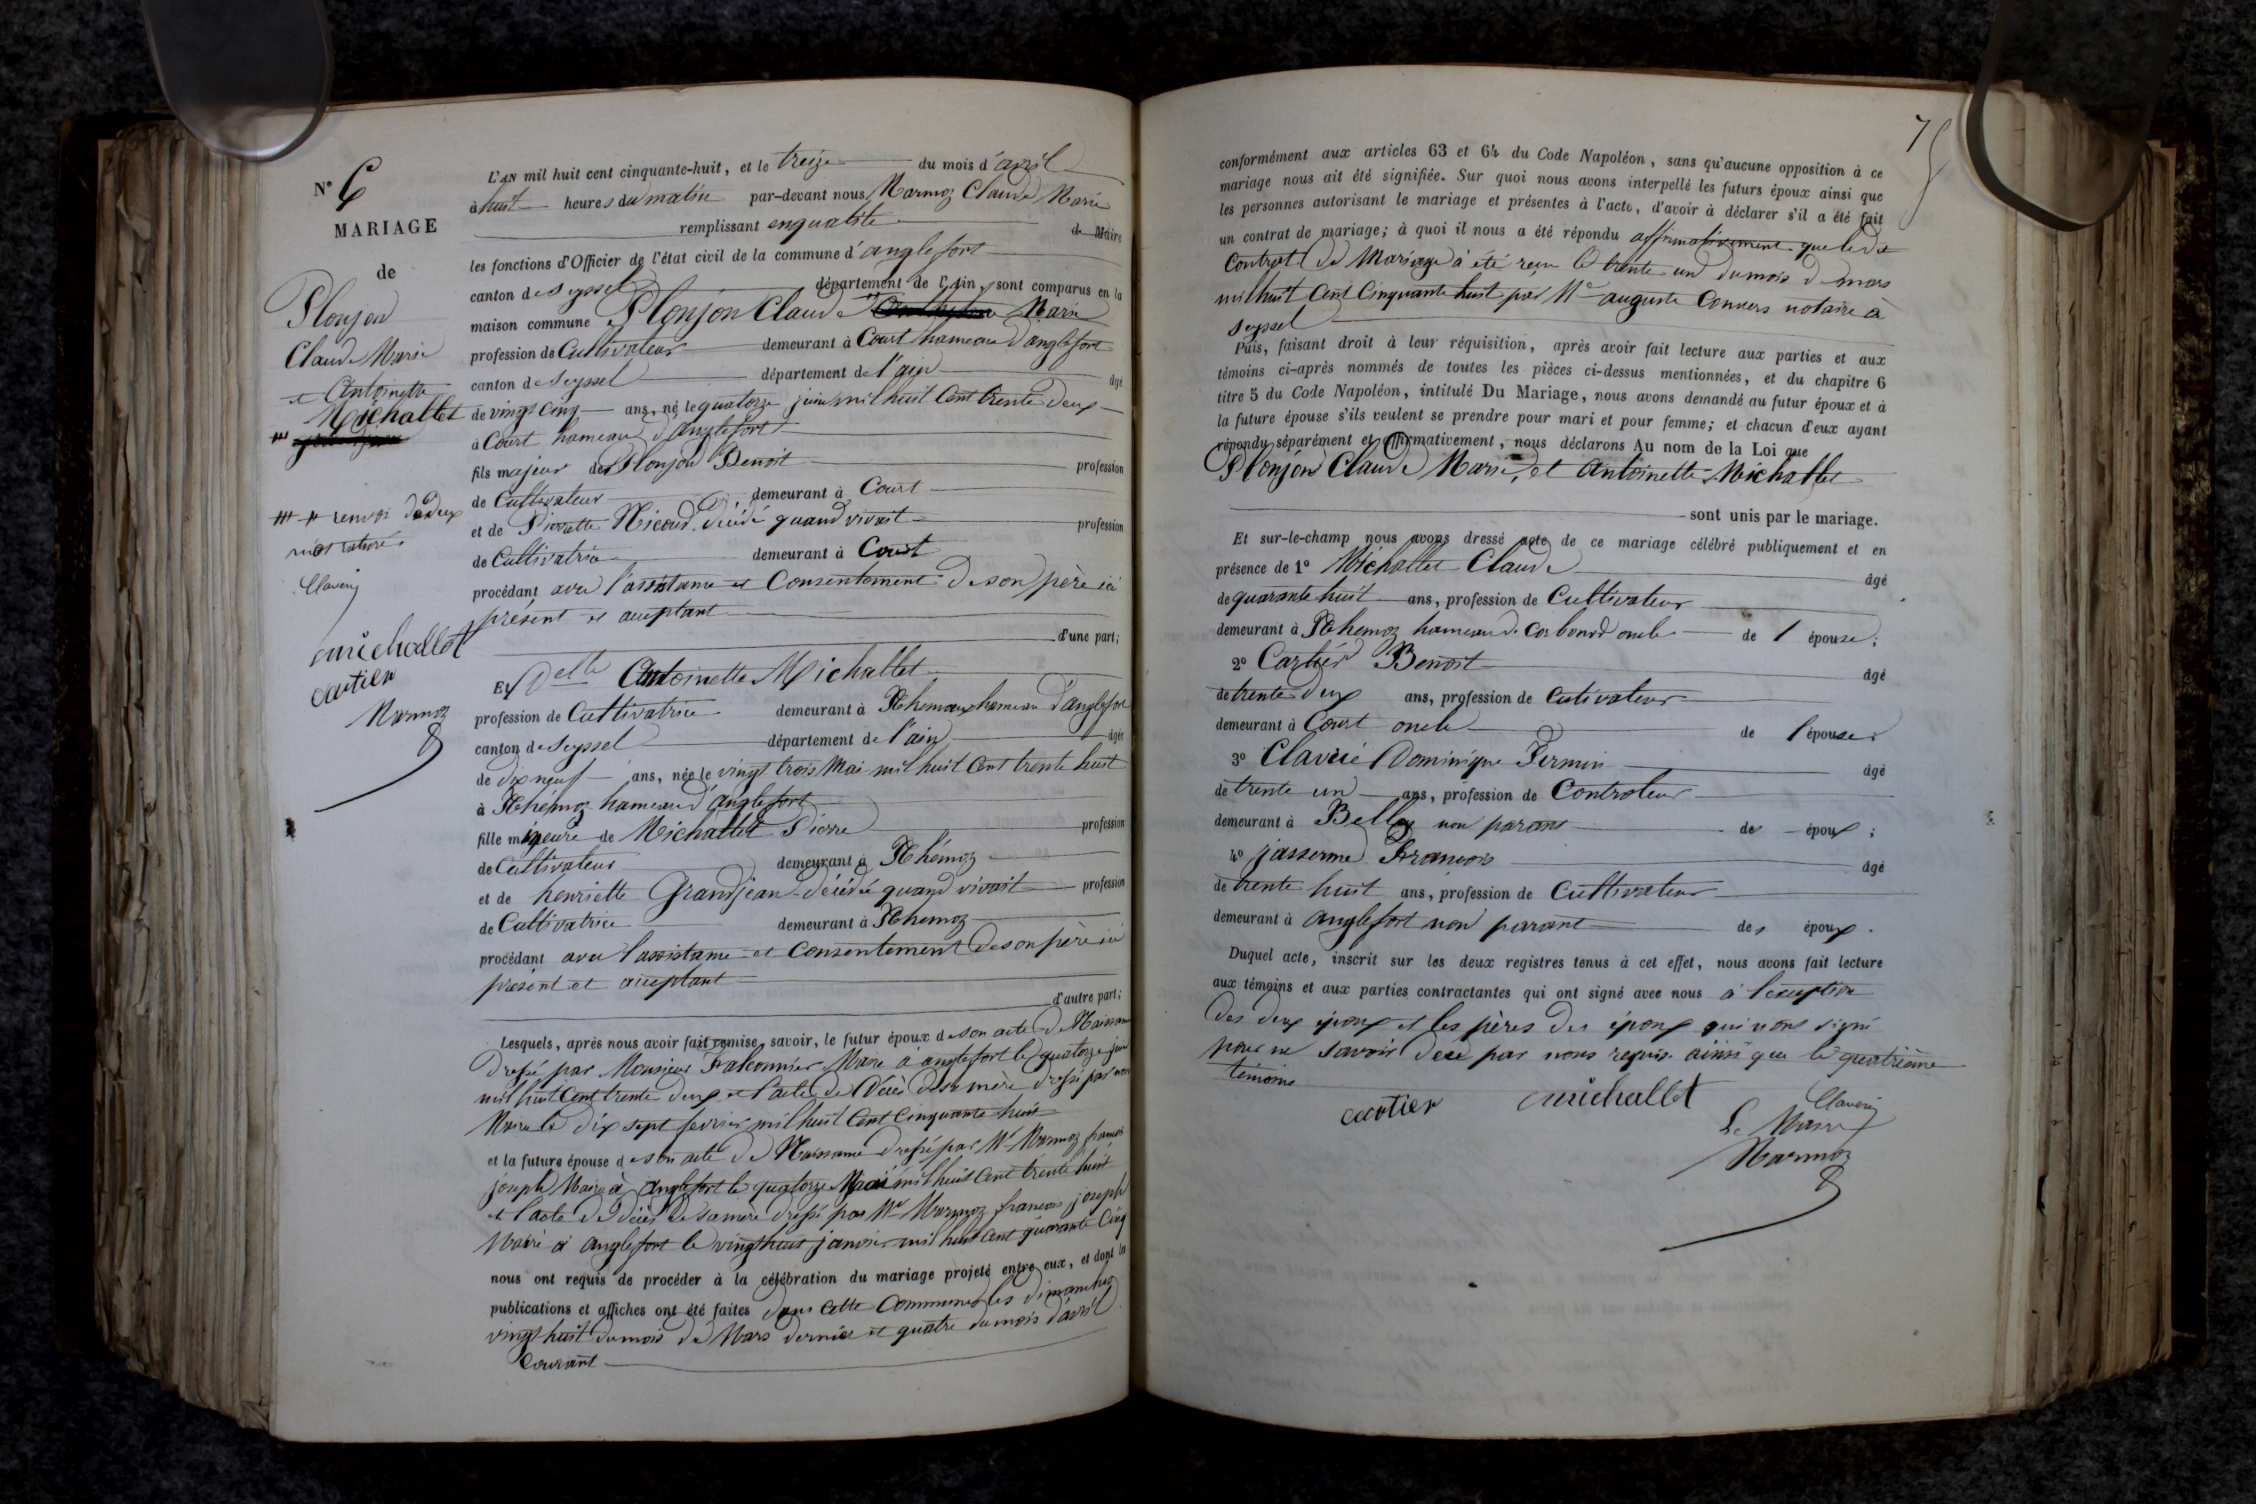 N° 6
MARIAGE
de
Plonjon
Claude Marie
et Antoinette
Michallet
renvoi de deux
mots
Claverie
michallet
cartier
Marmoz
L'AN mil huit cent cinquante-huit, et le treize du mois d'avril
à huit heures du matin par-devant nous, Marmoz Claude Marie
remplissant en qualité de Maire
les fonctions d'Officier de l'état civil de la commune d'anglefort
canton de Seyssel département de l'Ain, sont comparus en la
maison commune Plonjon Claude Marie
profession de Cultivateur demeurant à Court hameau d'anglefort
canton de Seyssel département de l'ain âgé
de vingt cinq ans, né le quatorze juin mil huit Cent trente deux
à Court hameau d'anglefort
fils majeur de Plonjon Benoit profession
de Cultivateur demeurant à Court
et de Pierrette Nicoud décédé quand vivait profession
de Cultivatrice demeurant à Court
procédant avec l'assistance et Consentement de son père ici
présent et acceptant
d'une part;
Et Delle Antoinette Michallet
profession de Cultivatrice demeurant à hameau d'anglefort
canton de Seyssel département de l'ain âgée
de dix neuf ans, née le vingt trois Mai mil huit Cent trente huit
à Rhémoz hameau d'anglefort
fille mineure de Michallet Pierre profession
de Cultivateur demeurant à Rhémoz
et de henriette Grandjean décédé quand vivait profession
de Cultivatrice demeurant à Rhemoz
procédant avec l'assistance et Consentement de son père ici
présent et acceptant
d'autre part;
Lesquels, après nous avoir fait remise, savoir, le futur époux de son acte de Naissance
dressé par Monsieur Falconnier Maire à anglefort le quatorze juin
mil huit Cent trente deux et l'acte de Décès de sa mère dressé par nous
Maire le dix sept fevrier mil huit Cent Cinquante huit
et la future épouse de son acte de Naissance dressé par Mr Marmoz francois
joseph Maire à anglefort le quatorze Mai mil huit Cent trente huit
et l'acte de décès de sa mère dressé par Mr Marmoz francois joseph
Maire à anglefort le vingt huit janvier mil huit Cent quarante Cinq
nous ont requis de procéder à la célébration du mariage projeté entre eux, et dont les
publications et affiches ont été faites dans cette Commune les dimanches
vingt huit du mois de Mars dernier et quatre du mois d'avril
Courant
conformément aux articles 63 et 64 du Code Napoléon, sans qu'aucune opposition à ce
mariage nous ait été signifiée. Sur quoi nous avons interpellé les futurs époux ainsi que
les personnes autorisant le mariage et présentes à l'acte, d'avoir à déclarer s'il a été fait
un contrat de mariage; à quoi il nous a été répondu affirmativement que le dit
Contrat de Mariage à été reçu le trente un du mois de mars
mil huit Cent Cinquante huit par Me auguste Convers notaire à
Seyssel
Puis, faisant droit à leur réquisition, après avoir fait lecture aux parties et aux
témoins ci-après nommés de toutes les pièces ci-dessus mentionnées, et du chapitre 6
titre 5 du Code Napoléon, intitulé Du Mariage, nous avons demandé au futur époux et à
la future épouse s'ils veulent se prendre pour mari et pour femme; et chacun d'eux ayant
répondu séparément et affirmativement, nous déclarons Au nom de la Loi que
Plonjon Claude Marie, et Antoinette Michallet
sont unis par le mariage.
Et sur-le-champ nous avons dressé acte de ce mariage célébré publiquement et en
présence de 1° Michallet Claude âgé
de quarante huit ans, profession de Cultivateur
demeurant à Rhemoz hameau de Corbonod oncle de l épouse;
2° Cartier Benoit âgé
de trente deux ans, profession de Cutivateur
demeurant à Court oncle de l épouse;
3° Claverie Dominique Firmin âgé
de trente un ans, profession de Controleur
demeurant à Belley non parant des époux;
4° jasserme François âgé
de trente huit ans, profession de Cultivateur
demeurant à anglefort non parant des époux.
Duquel acte, inscrit sur les deux registres tenus à cet effet, nous avons fait lecture
aux témoins et aux parties contractantes qui ont signé avec nous à l'exception
des deux époux et les pères des époux qui n'ont signé
pour ne savoir de ce par nous requis ainsi que le quatrième
témoin
cartier michallet Claverie
Le Maire
Marmoz